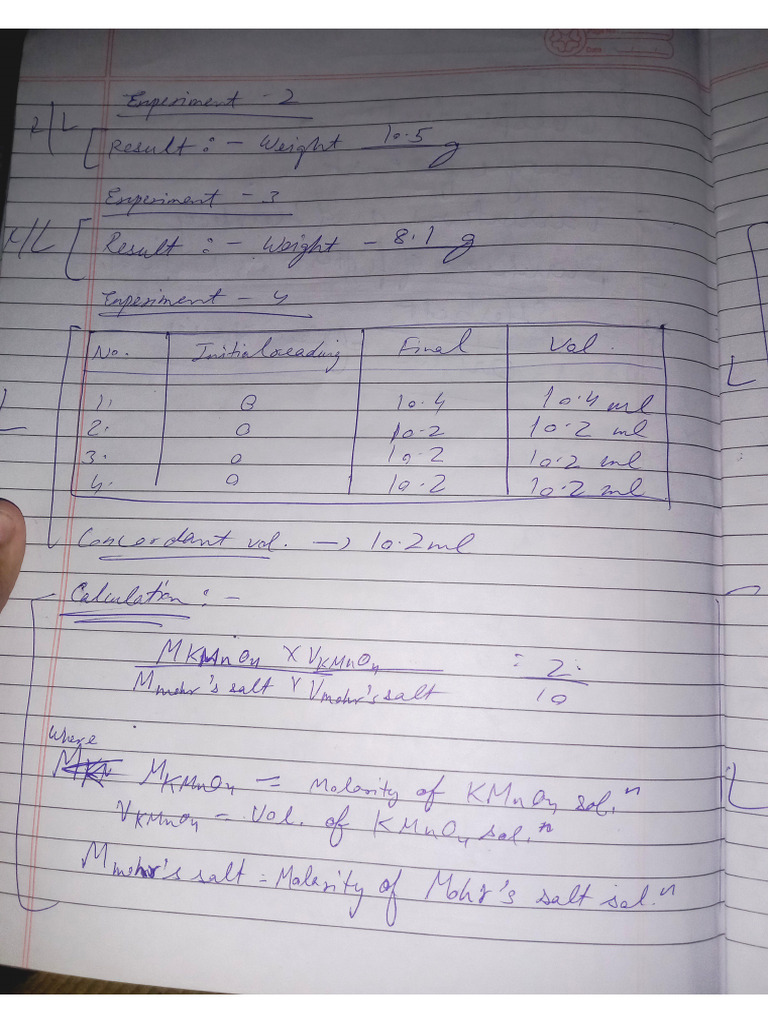 Date
Experiment - 2
R/L
Result : - Weight 10.5 g
Experiment - 3
R/L
Result : - Weight - 8.1 g
Experiment - 4
No. Initial reading Final Vol.
1. 0 10.4 10.4 ml
2. 0 10.2 10.2 ml
3. 0 10.2 10.2 ml
4. 0 10.2 10.2 ml
Concordant vol. → 10.2 ml
Calculation : -
MKMnO4 X VKMnO4 = 2
Mmohr's salt X Vmohr's salt 10
where
MKMnO4 = Molarity of KMnO4 sol.n
VKMnO4 - Vol. of KMnO4 sol.n
Mmohr's salt = Molarity of Mohr's salt sol.n